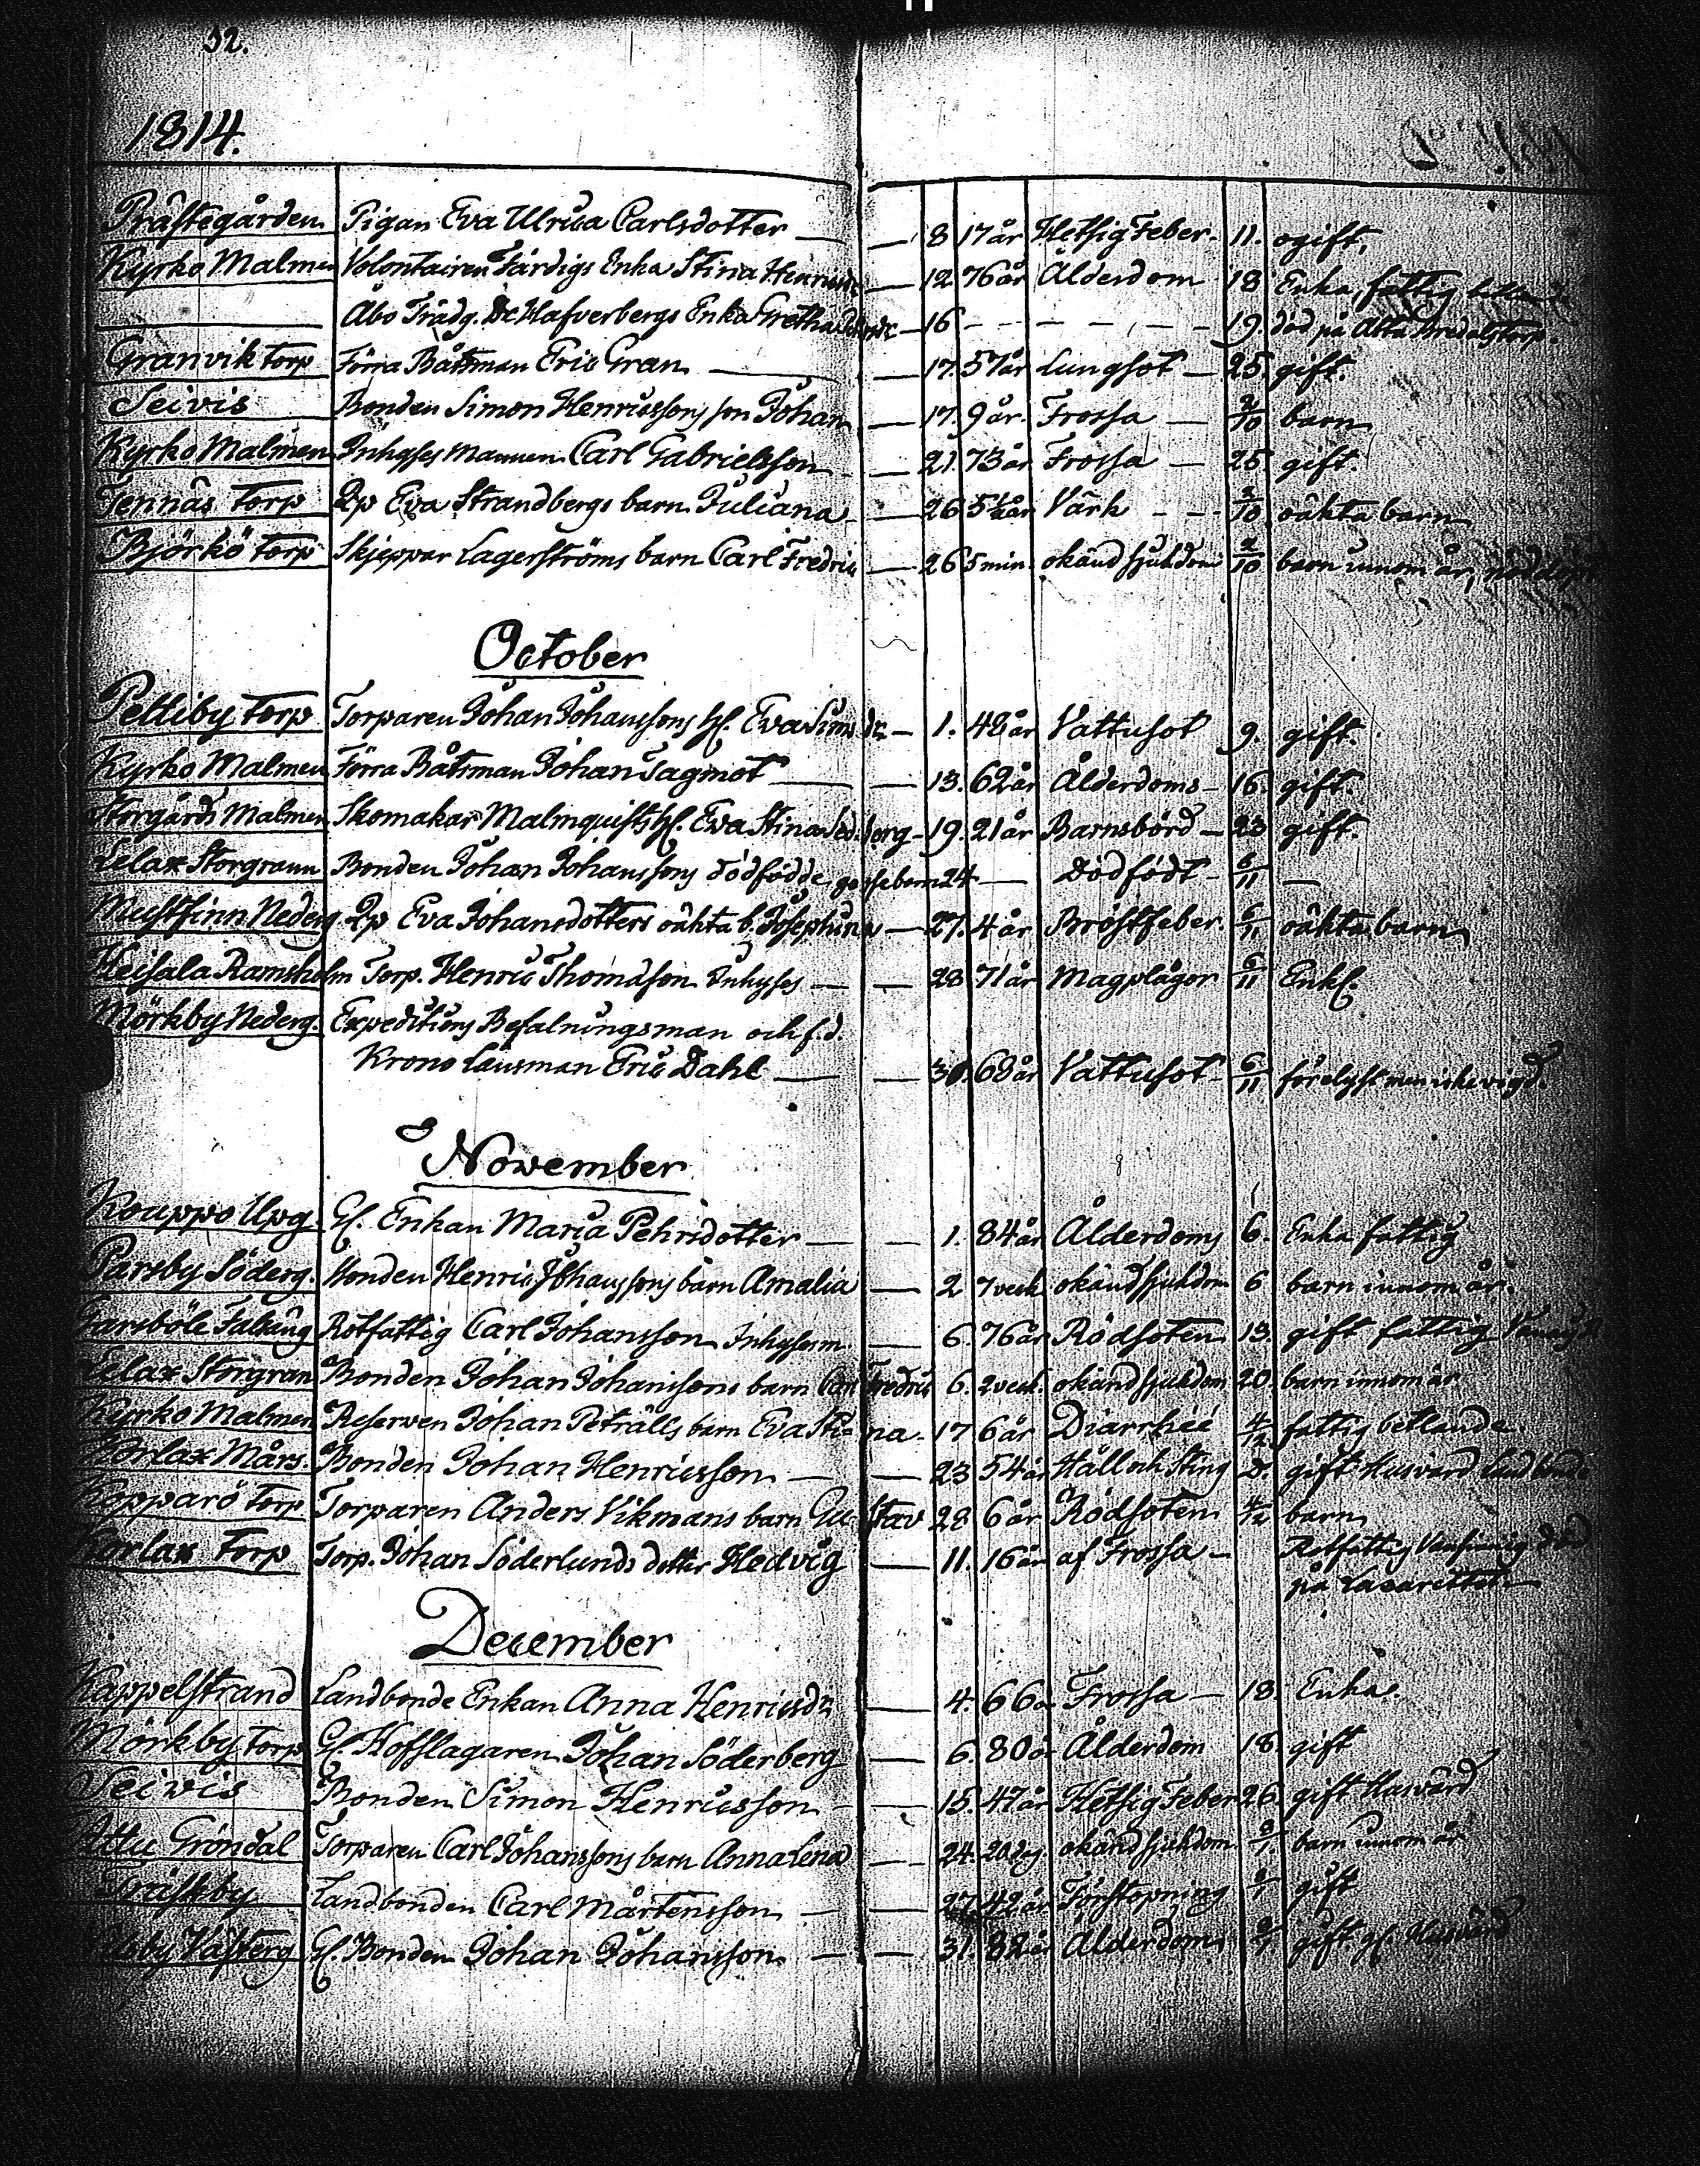 52.
1814.
Prästegården Pigan Eva Ulrica Carlsdotter — — 8 17 år Hetsig Feber. 11. ogift.
Kyrko Malmen Volontairen Färdigs Enka Stina — 12 76 år Ålderdom 18 Enka, fattig
— Åbo Trädg. Hafverbergs Enka Gretha — 16 - - - - - - 19. död på
Granvik torp Förra Båtsman Eric Gran — — 17. 57 år Lungsot — 25. gift.
Seivis Bonden Simon Henricssons son Johan — 17. 9 år. Frossa — 2/10 barn
Kyrko Malmen Inhyses Mannen Carl Gabrielsson — 21. 73 år Frossa — 25. gift.
Tennäs Torp Qp Eva Strandbergs barn Juliana — 26 5½ år Värk - - 2/10 oäkta barn
Björkö Torp Skjeppar Lagerströms barn Carl Fredric — 26 5 min. okänd sjukdom 2/10 barn innom år,
October
Pettiby Torp Torparen Johan Johanssons h. Eva Sims dr — 1. 48 år Vattusot 9. gift.
Kyrko Malmen Förra Båtsman Johan Tagmot — — 13. 62 år Ålderdoms — 16. gift.
Storgårds Malmen Skomakar Malmquists h. Eva Stina — 19. 21 år Barnsbörd — 23 gift.
Lelax Storgrann Bonden Johan Johanssons dödfödde gossebarn 24 — Dödfödt — 6/11 —
Mustfinn Nederg Qp Eva Johansdotters oäkta b. Josephina — 27. 4 år Bröstfeber. 6/11 oäkta barn
Heisala Ramsholm Torp. Henric Thomasson Inhyses — — 28 71 år Magplågor 6/11 Enkl.
Mörkby Nederg. Expeditions Befalningsman och f.d.
Krono Länsman Eric Dahl — — 30. 68 år Vattusot — 6/11 förelyst men icke vigd.
November
Koupo Upg. Gl. Enkan Maria Pehrsdotter — — 1. 84 år Ålderdoms 6. Enka fattig
Parsby Söderg. Bonden Henric Johanssons barn Amalia — 2 7 veck okänd sjukdom 6 barn innom år.
Rotfattig Carl Johansson Inhysesm. — 6. 76 år Rödsoten 13. gift fattig
Lelax Storgran Bonden Johan Johanssons barn Carl Fredric 6. 2 veck. okänd sjukdom 20. barn innom år
Kyrko Malmen Reserven Johan Peträlls barn Eva Stina — 17 6 år Diarrhéé 4/12 fattig betlande.
Korlax Mårs. Bonden Johan Henricsson — — 23 54 år Håll och Sting D. gift Husvärd
Kopparö Torp Torparen Anders Vikmans barn Gustav 28 6 år Rödsoten 4/12 barn
Korlax Torp Torp. Johan Söderlunds dotter Hedvig — 11. 16 år af Frossa — Rotfattig död
på Lazarettet —
December
Kappelstrand Landbonde Enkan Anna Henricsdr — 4. 66 å Frossa — 18. Enka.
Mörkby Torp Gl. Hofslagaren Johan Söderberg — 6. 80 å Ålderdom 18. gift
Seivis Bonden Simon Henricsson — — 15. 47 år Hetsig Feber 26. gift Husvärd
Attu Gröndal Torparen Carl Johanssons barn Anna Lena — 24. 20 dag. okänd sjukdom 8/1. barn innom år
Träskby Landbonden Carl Mårtensson — — 27. 42 år Förstopning 8/1 gift
Västerg Gl. Bonden Johan Johansson — — 31. 82 år Ålderdoms 8/1 gift gl. Husvärd